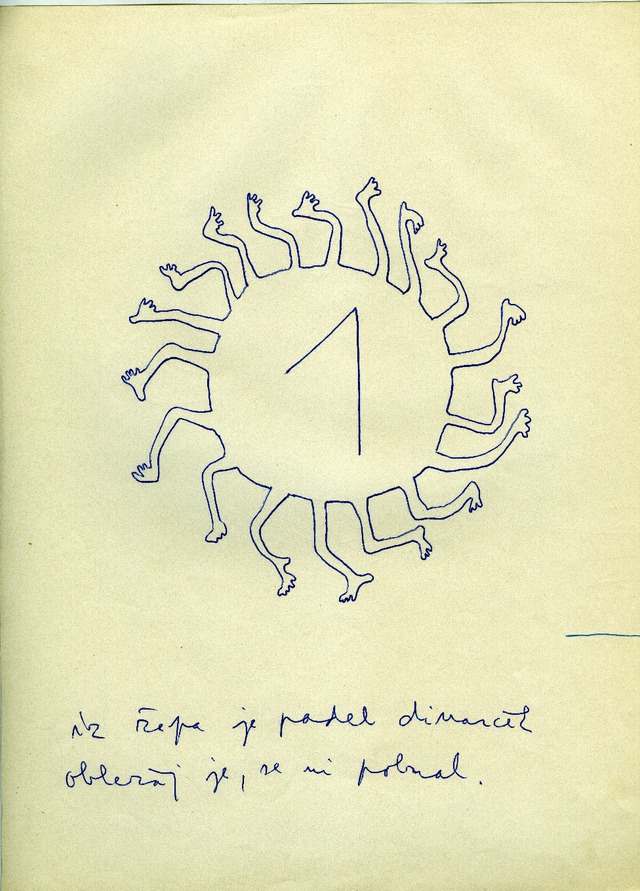 1
iz žepa je padel dinarček
obležal je, se ni pobral.